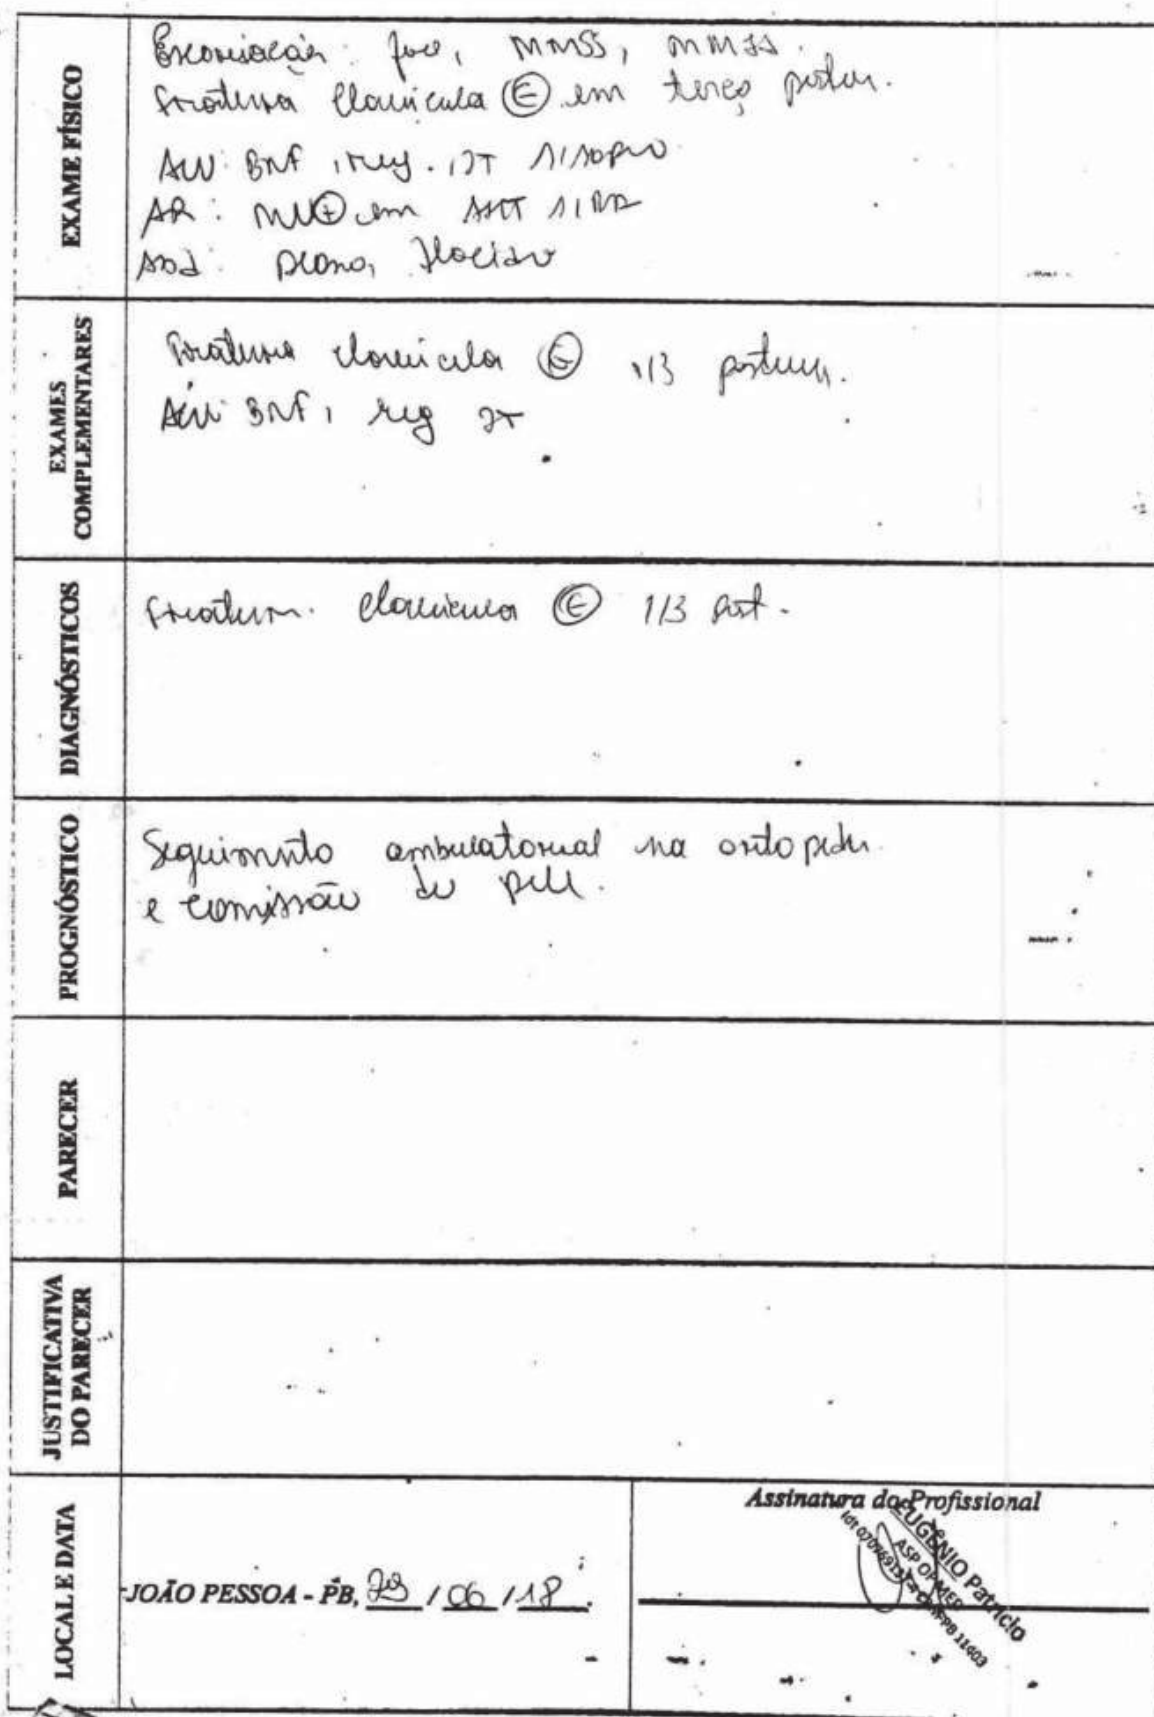 EXAME FÍSICO
Escoriações: face, MMSS, MMII.
Fratura Clavicula (E) em terço
ACV: BNF, reg. 2T s/sopro
AR: MV(+) em AHT s/RA
Abd: plano, flácido
EXAMES
COMPLEMENTARES
Fratura clavicula (E) 1/3
ACV: BNF, reg 2T
DIAGNÓSTICOS
Fratura. Clavicula (E) 1/3 post.
PROGNÓSTICO
Seguimento ambulatorial na ortopedia
e comissão de pele.
PARECER
JUSTIFICATIVA
DO PARECER
LOCAL E DATA
JOÃO PESSOA - PB, 29 / 06 / 18.
Assinatura do Profissional
EUGÊNIO Patricio
ASP OF MED
11603